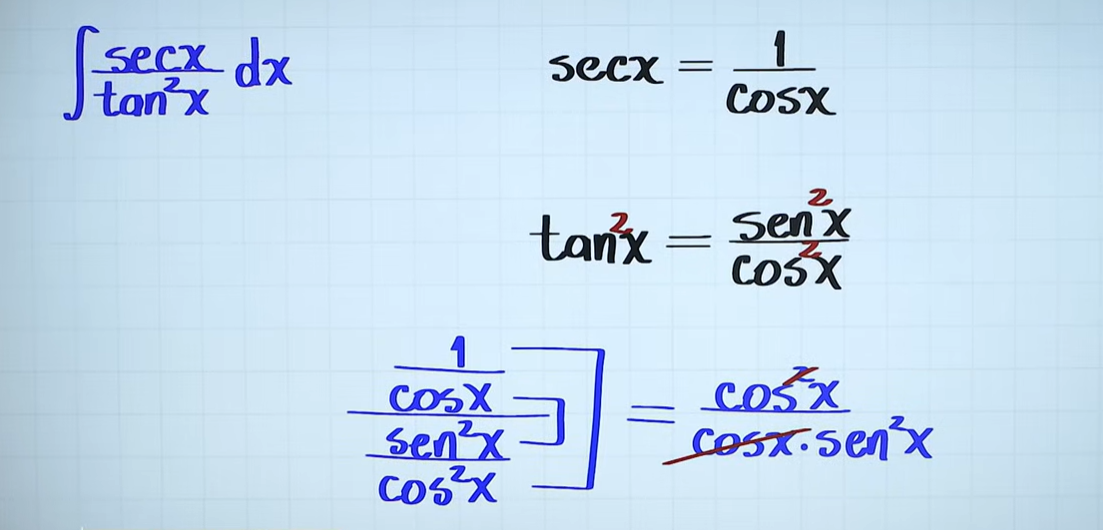 ∫ secx / tan²x dx
secx = 1 / cosx
tan²x = sen²x / cos²x
1 / cosx / sen²x / cos²x = cos²x / cosx · sen²x